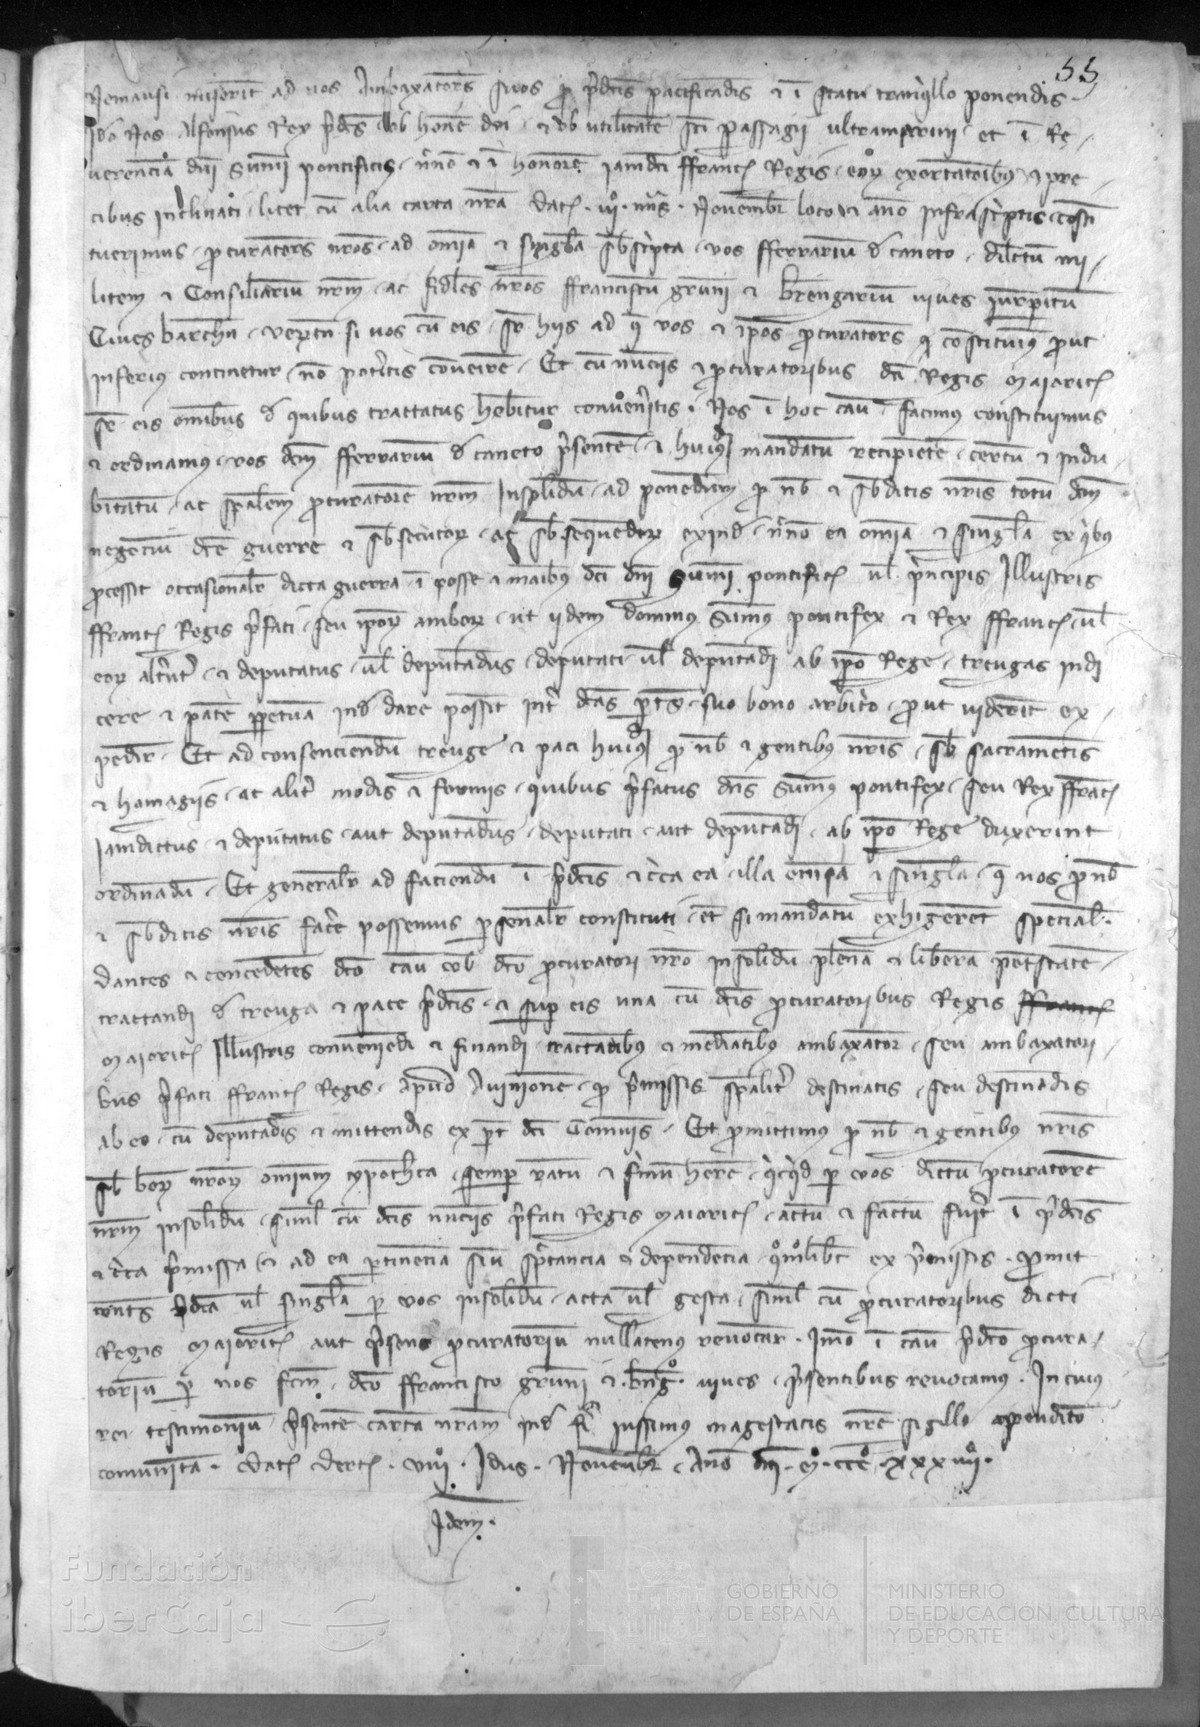 55
Nemausi miserit ad vos Ambaxatores suos pro predictis pacificandis et in statu tranquillo ponendis
Ideo Nos Alfonsus Rex predictus ob honorem dei et ob utilitatem sancti passagii ultramarini et in Re
verenciam domini Summi pontificis necnon et in honorem iamdicti ffrancie Regis eorum exortationibus et pre
cibus inclinati licet cum alia carta nostra data nonas Novembris loco et anno infrascriptis consti
tuerimus procuratores nostros ad omnia et singula subscripta vos fferrarium de caneto dilectum mi
litem et Consiliarium nostrum ac fideles nostros ffranciscum gruni et Berengarium vives iurisperitum
Cives barchinone verumtamen si vos cum eis super hiis ad que vos et ipsos procuratores constituimus prout
inferius continetur non poteritis convenire Et cum nunciis et procuratoribus dicti Regis Maioricarum
super eis omnibus de quibus tractatus habebitur conveneritis Nos in hoc casu facimus constituimus
et ordinamus vos dictum fferrarium de caneto presentem et huiusmodi mandatum recipientem certum et indu
bitatum ac specialem procuratorem nostrum Insolidum ad ponendum pro nobis et subditis nostris totum dictum
negocium dicte guerre et subsecutorum ac subsequendorum exinde necnon ea omnia et singula ex quibus
processit occasionaliter dicta guerra in posse et manibus dicti domini Summi pontificis vel principis Illustris
ffrancie Regis prefati seu ipsorum amborum ut iidem dominus Summus pontifex et Rex ffrancie vel
eorum alter et deputatus vel deputandus deputati vel deputandi ab ipso Rege treugas indi
cere et pacem perpetuam inde dare possint inter dictas partes suo bono arbitrio prout viderint ex
pedire Et ad consenciendum treuge et paci huiusmodi pro nobis et gentibus nostris sub sacramentis
et homagiis ac aliter modis et formis quibus prefatus dominus Summus pontifex seu Rex ffrancie
Iamdictus et deputatus aut deputandus deputati aut deputandi ab ipso Rege duxerint
ordinandum Et generaliter ad faciendum in predictis et circa ea illa omnia et singula que nos pro nobis
et subditis nostris facere possemus personaliter constituti etiam si mandatum exhigerent speciale
dantes et concedentes dicto casu vobis dicto procuratori nostro insolidum plenam et liberam potestatem
tractandi de treuga et pace predictis et super eis una cum dictis procuratoribus Regis ffrancie
Maioricarum Illustris conveniendi et firmandi tractantibus et mediantibus ambaxatore seu ambaxatori
bus prefati ffrancie Regis apud Avinionem pro premissis specialiter destinatis seu destinandis
ab eo cum deputandis et mittendis ex parte dicti Comunis Et promittimus pro nobis et gentibus nostris
sub bonorum nostrorum omnium ypotheca semper ratum et firmum habere quicquid per vos dictum procuratorem
nostrum insolidum simul cum dictis nunciis prefati Regis Maioricarum actum et factum fuerit in predictis
et circa premissa et ad ea pertinencia seu spectancia et dependencia quomodolibet ex premissis promit
tentes predicta vel singula per vos insolidum acta vel gesta simul cum procuratoribus dicti
Regis Maioricarum aut presens procuratorium nullatenus revocare Immo in casu predicto procura
torium per nos factum dicto ffrancisco gruni et Berengario vives presentibus revocamus In cuius
rei testimonium presentem cartam nostram inde fieri iussimus magestatis nostre sigillo apendicio
comunitam Data Dertuse viiio Idus Novembris Anno domini Mo CCCo xxx iiiio
Idem
Fundación
iberCaja
GOBIERNO
DE ESPAÑA
MINISTERIO
DE EDUCACIÓN, CULTURA
Y DEPORTE